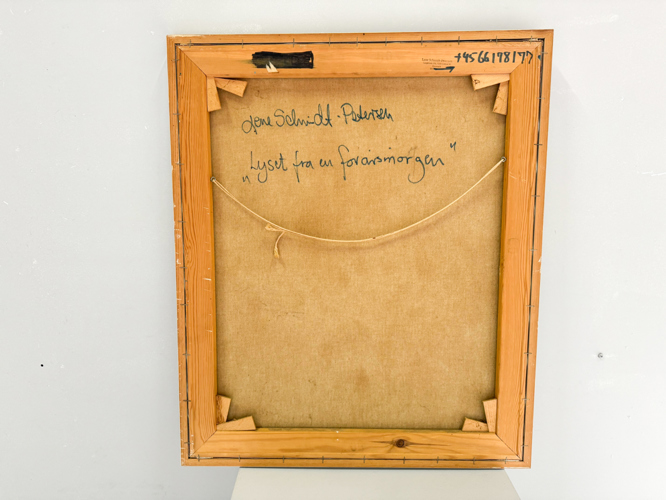 +4566198177
Lone Schmidt-Petersen
„Lyset fra en forårsmorgen"